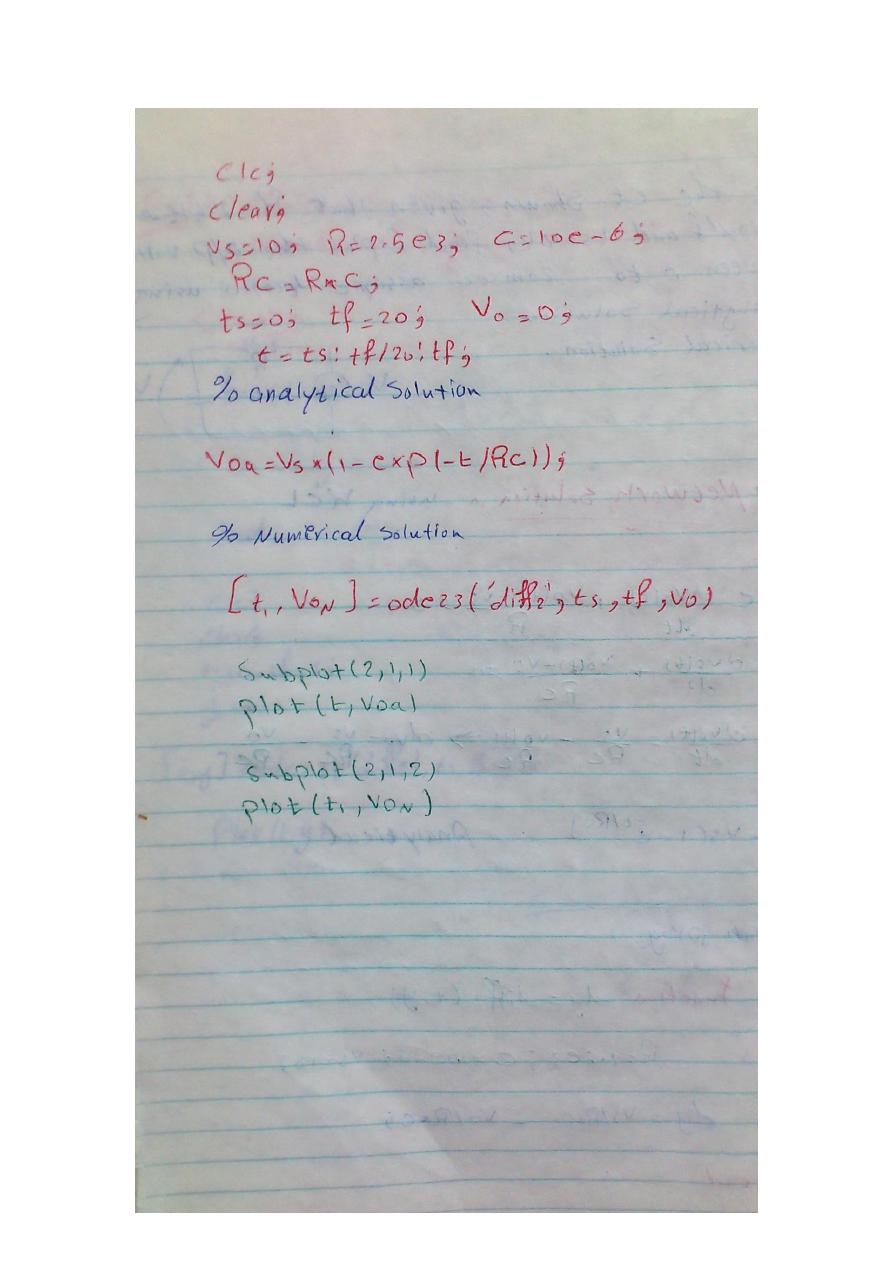 clc;
clear;
Vs=10; R=2.5e3; C=10e-6;
RC=R*C;
ts=0; tf=20; Vo=0;
t=ts:tf/20:tf;
% analytical Solution
Voa=Vs*(1-exp(-t/RC));
% Numerical Solution
[t1,VoN]=ode23('diff2',ts,tf,Vo)
Subplot(2,1,1)
plot(t,Voa)
Subplot(2,1,2)
plot(t1,VoN)